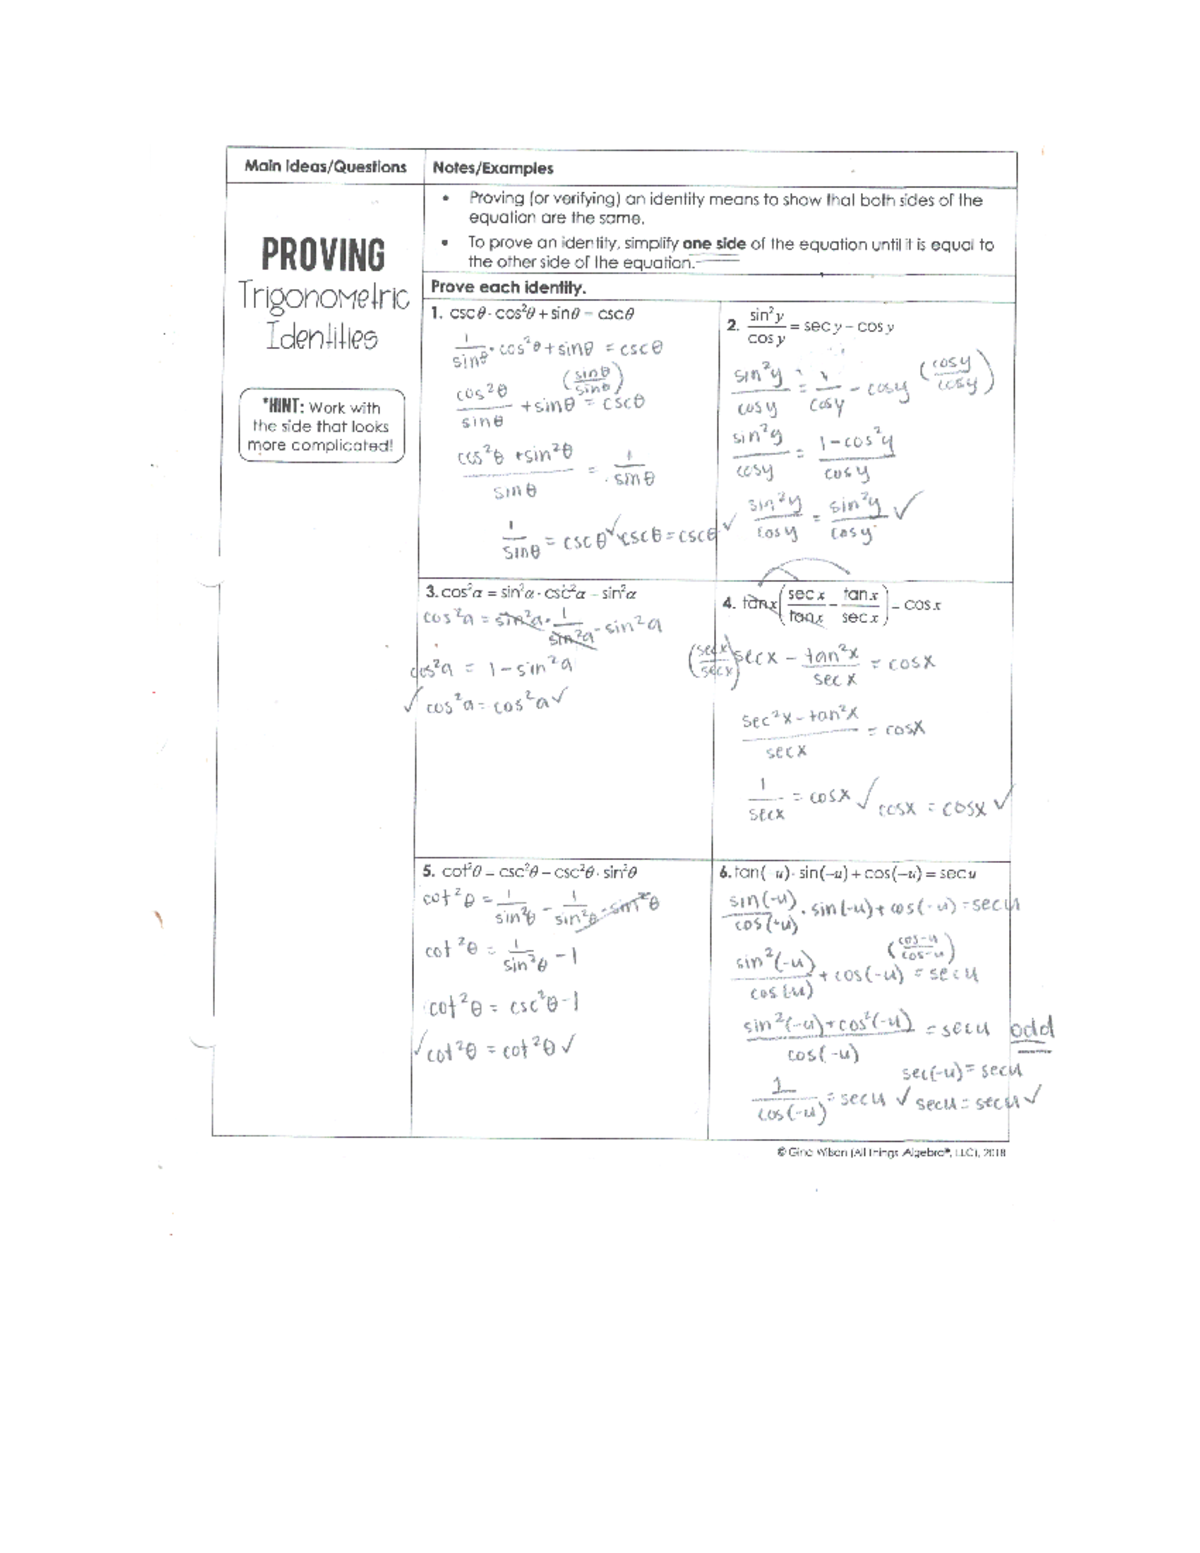 Main Ideas/Questions
Notes/Examples
PROVING
Trigonometric
Identities
*HINT: Work with
the side that looks
more complicated!
• Proving (or verifying) an identity means to show that both sides of the
equation are the same.
• To prove an identity, simplify one side of the equation until it is equal to
the other side of the equation.
Prove each identity.
1. cscθ · cos²θ + sinθ = cscθ
1/sinθ · cos²θ + sinθ = cscθ
cos²θ/sinθ + sinθ (sinθ/sinθ) = cscθ
cos²θ + sin²θ/sinθ = 1/sinθ
1/sinθ = cscθ ✓ cscθ = cscθ ✓
2. sin²y/cos y = sec y − cos y
sin²y/cosy = 1/cosy − cosy (cosy/cosy)
sin²y/cosy = 1−cos²y/cosy
sin²y/cosy = sin²y/cosy ✓
3. cos²α = sin²α · csc²α − sin²α
cos²a = sin²a · 1/sin²a − sin²a
cos²a = 1 − sin²a
✓ cos²a = cos²a ✓
4. tan x (sec x/tan x − tan x/sec x) = cos x
(secx/secx) secx − tan²x/secx = cosx
sec²x − tan²x/secx = cosx
1/secx = cosx ✓ cosx = cosx ✓
5. cot²θ = csc²θ − csc²θ · sin²θ
cot²θ = 1/sin²θ − 1/sin²θ · sin²θ
cot²θ = 1/sin²θ − 1
cot²θ = csc²θ − 1
✓ cot²θ = cot²θ ✓
6. tan(−u) · sin(−u) + cos(−u) = sec u
sin(−u)/cos(−u) · sin(−u) + cos(−u) = secu
sin²(−u)/cos(−u) + cos(−u) (cos−u/cos−u) = secu
sin²(−u) + cos²(−u)/cos(−u) = secu odd
sec(−u) = secu
1/cos(−u) = secu ✓ secu = secu ✓
© Gina Wilson (All Things Algebra®, LLC), 2018